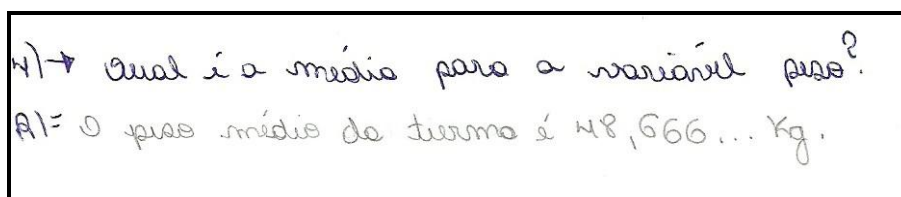 4)→ Qual é a média para a variável peso?
R)= O peso médio da turma é 48,666... Kg.